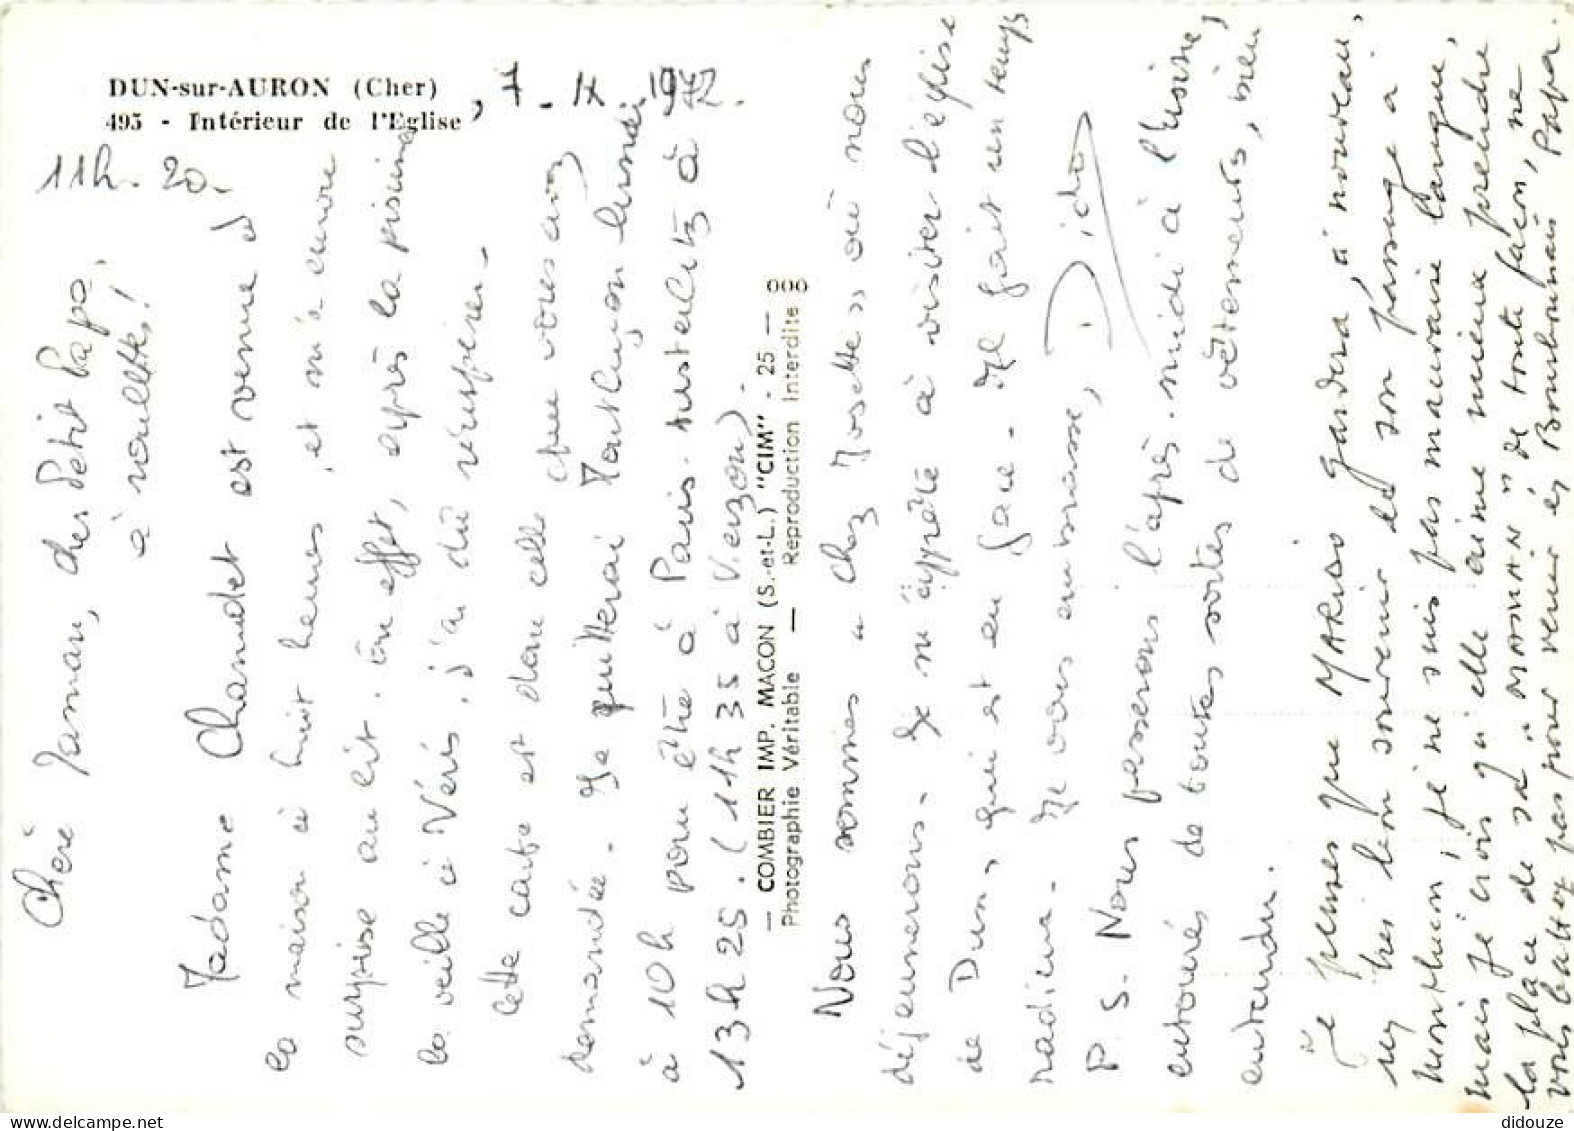 DUN-sur-AURON (Cher)
493 - Intérieur de l'Eglise
, 7. IX 1972.
11h. 20.
Chère Maman, cher Petit Papa,
à nouillette!
Madame Chaudet est venue à
la maison à huit heures, et m'a encore
surprise au lit. En effet, après la piscine
la veille à Néris, j'ai dû
cette carte est donc celle que vous avez
demandée. Je quitterai Montluçon lundi
à 10h pour être à Paris-Austerlitz à
13h25. (11h35 à Vierzon).
— COMBIER IMP. MACON (S.-et-L.) "CIM" - 25 —
Photographie Véritable — Reproduction Interdite
Nous sommes " chez Mosette » où nous
déjeunerons. Je m'apprête à visiter l'église
de Dun, qui est en face. Il fait un temps
radieux. Je vous embrasse,
Dido
P.S. Nous passerons l'après-midi à l'usine,
entourés de toutes sortes de vêtements, bien
entendu.
Je pense que MARIDO gardera, à nouveau,
un très bon souvenir de son passage à
Montluçon, je ne suis pas mauvaise langue,
mais je crois qu'elle aime mieux prendre
la place de sa " MAMAN " de toute façon, ne
vous battez pas pour venir en Bourbonnais Papa.
didouze